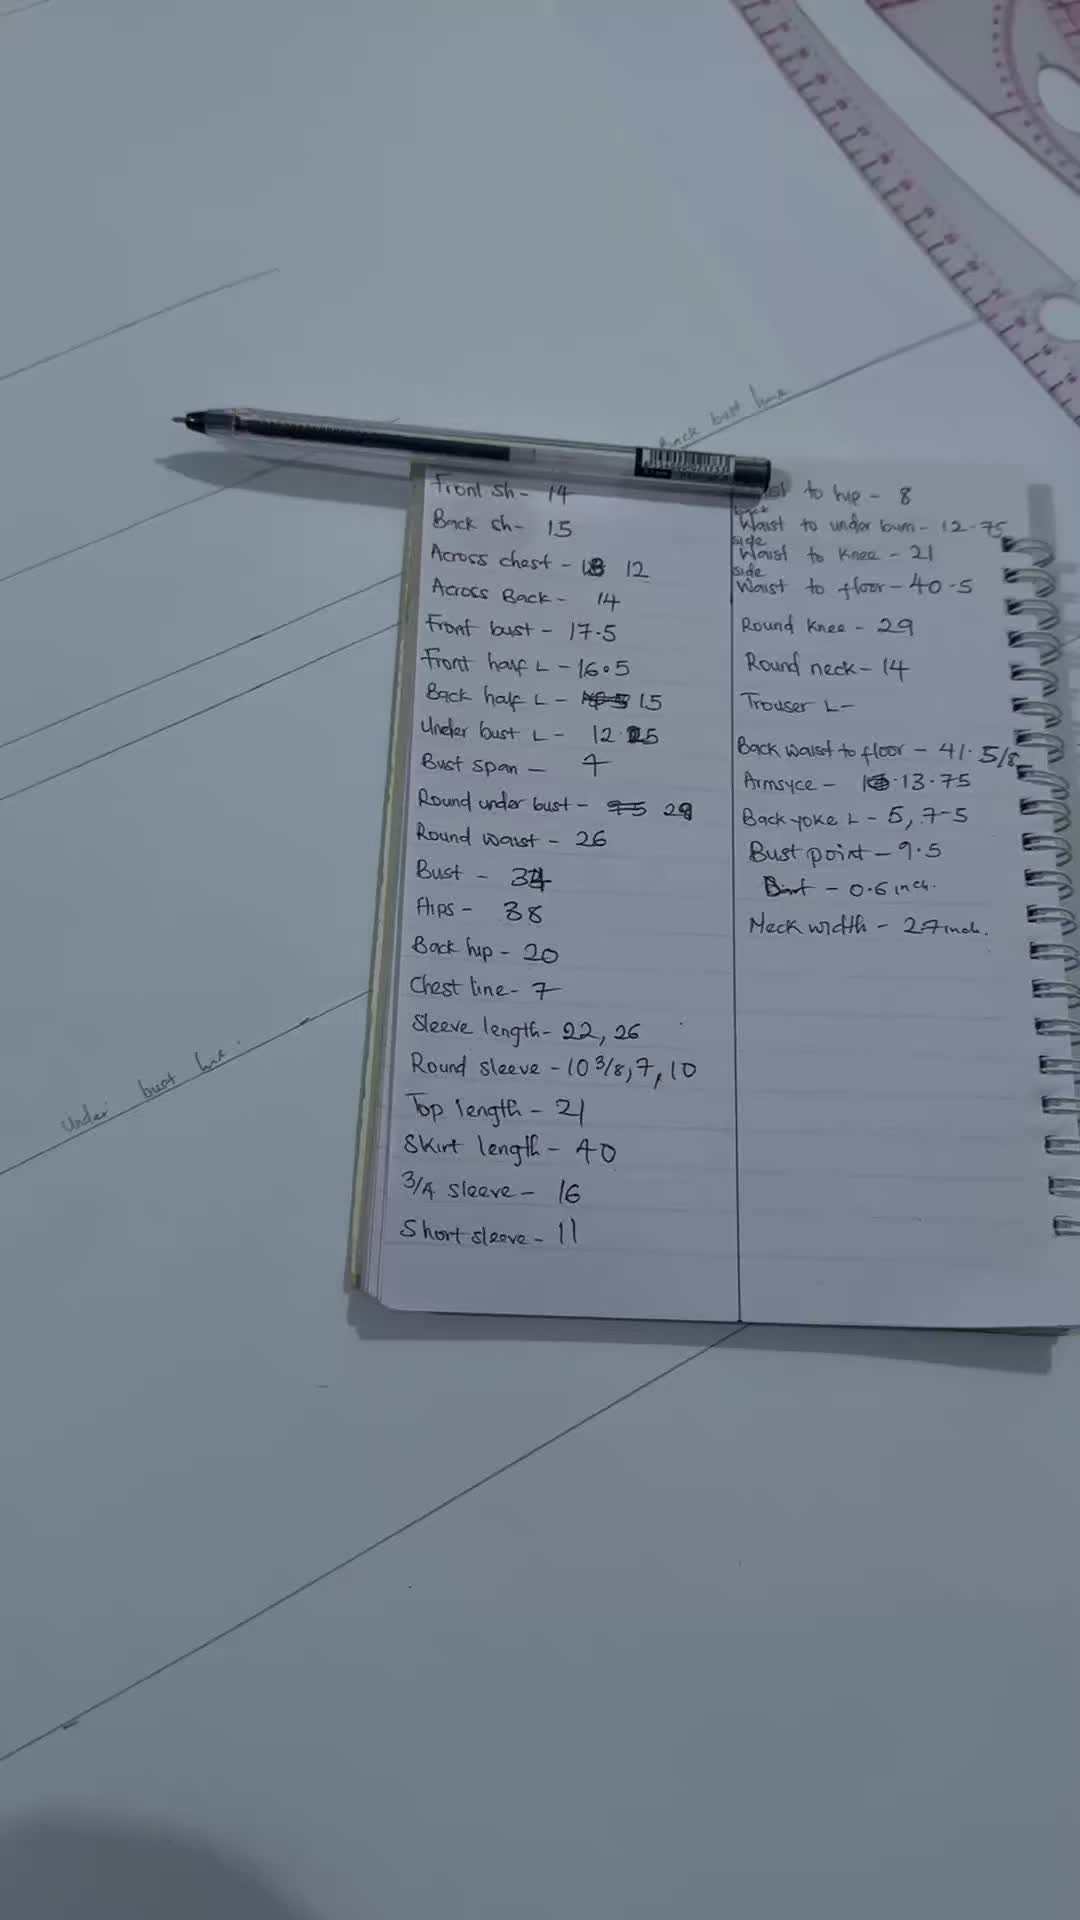 Back bust line
Front sh - 14
Back sh - 15
Across chest - 12
Across Back - 14
Front bust - 17.5
Front half L - 16.5
Back half L - 15
Under bust L - 12.25
Bust span - 7
Round under bust - 29
Round waist - 26
Bust - 34
Hips - 38
Back hip - 20
Chest line - 7
Sleeve length - 22, 26
Round sleeve - 10 3/8, 7, 10
Top length - 21
Skirt length - 40
3/4 sleeve - 16
Short sleeve - 11
to hip - 8
Waist to under bum - 12.75
side
Waist to knee - 21
side
Waist to floor - 40.5
Round knee - 29
Round neck - 14
Trouser L -
Back waist to floor - 41.5/8
Armsyce - 13.75
Back yoke L - 5, 7-5
Bust point - 9.5
- 0.6 inch.
Neck width - 2.7 inch.
Under bust line.